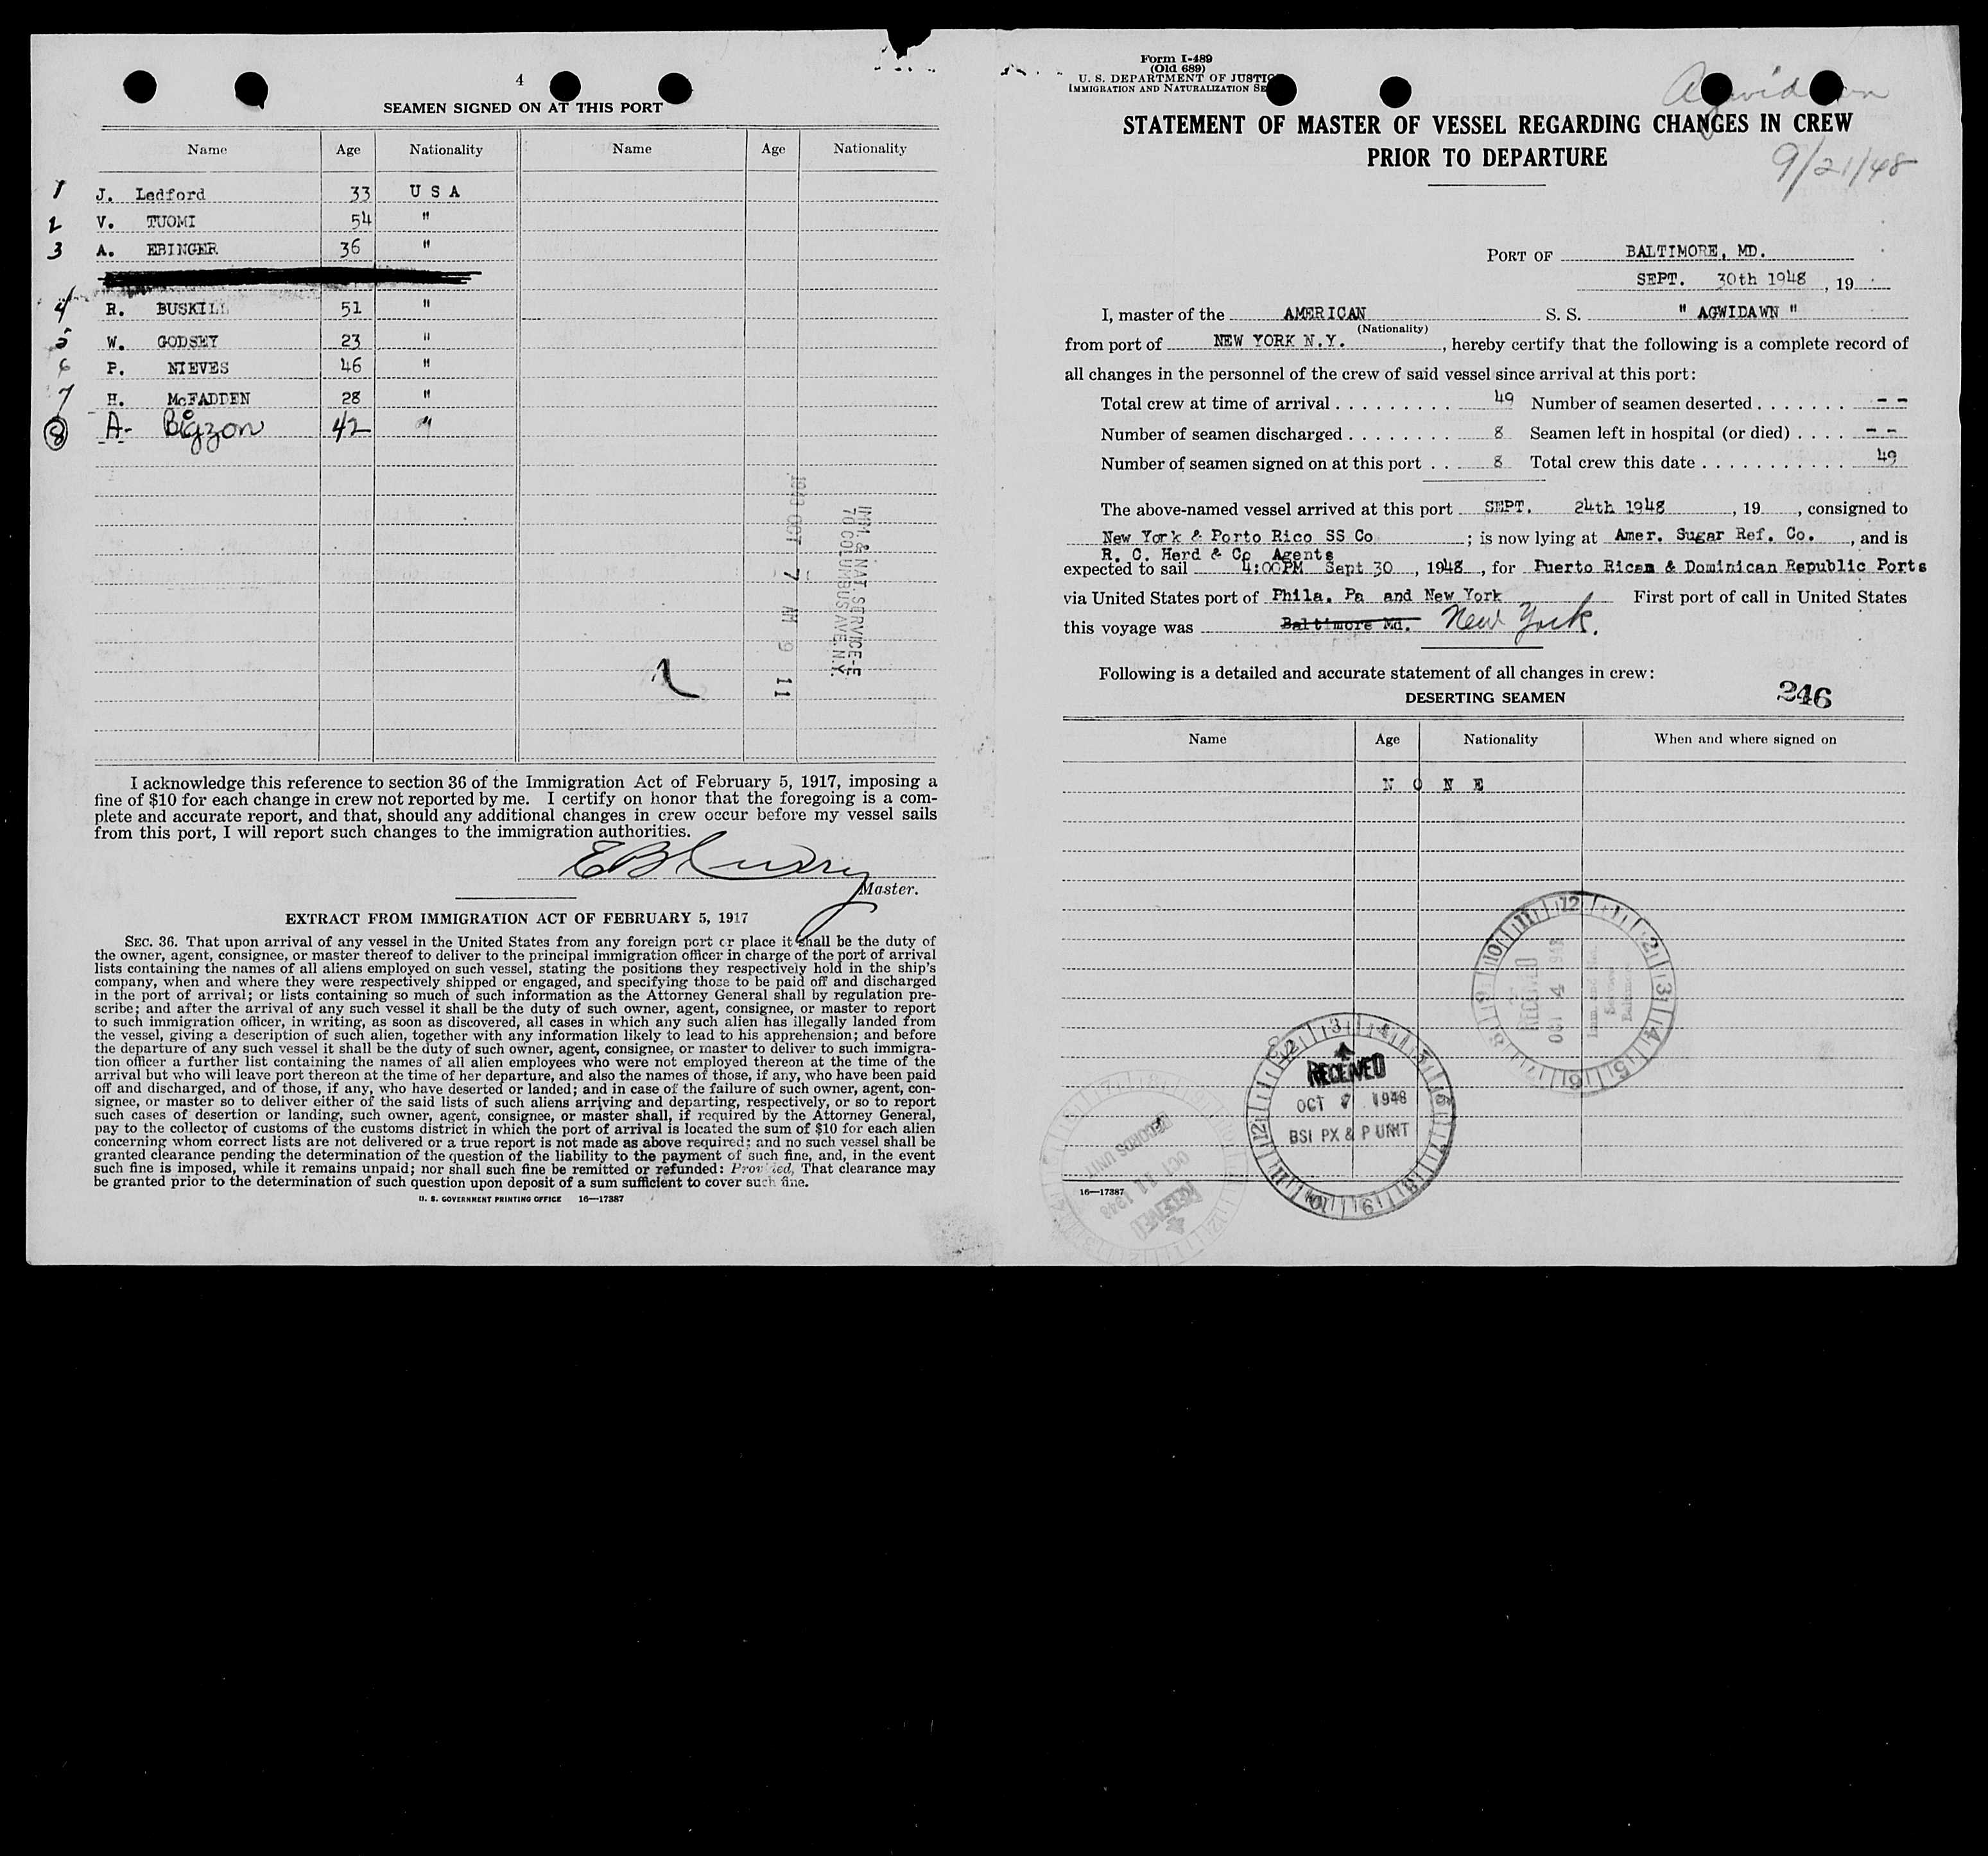 4
SEAMEN SIGNED ON AT THIS PORT
Name Age Nationality Name Age Nationality
1 J. Ledford 33 U S A
2 V. TUOMI 54 "
3 A. EBINGER 36 "
4 R. BUSKILL 51 "
5 W. GODSEY 23 "
6 P. NIEVES 46 "
7 H. McFADDEN 28 "
8 A- Bigzon 42 "
IMM. & NAT. SERVICE-E
70 COLUMBUS AVE. N.Y.
1948 OCT 7 AM 9 11
I acknowledge this reference to section 36 of the Immigration Act of February 5, 1917, imposing a
fine of $10 for each change in crew not reported by me. I certify on honor that the foregoing is a com-
plete and accurate report, and that, should any additional changes in crew occur before my vessel sails
from this port, I will report such changes to the immigration authorities.
Master.
EXTRACT FROM IMMIGRATION ACT OF FEBRUARY 5, 1917
SEC. 36. That upon arrival of any vessel in the United States from any foreign port or place it shall be the duty of
the owner, agent, consignee, or master thereof to deliver to the principal immigration officer in charge of the port of arrival
lists containing the names of all aliens employed on such vessel, stating the positions they respectively hold in the ship's
company, when and where they were respectively shipped or engaged, and specifying those to be paid off and discharged
in the port of arrival; or lists containing so much of such information as the Attorney General shall by regulation pre-
scribe; and after the arrival of any such vessel it shall be the duty of such owner, agent, consignee, or master to report
to such immigration officer, in writing, as soon as discovered, all cases in which any such alien has illegally landed from
the vessel, giving a description of such alien, together with any information likely to lead to his apprehension; and before
the departure of any such vessel it shall be the duty of such owner, agent, consignee, or master to deliver to such immigra-
tion officer a further list containing the names of all alien employees who were not employed thereon at the time of the
arrival but who will leave port thereon at the time of her departure, and also the names of those, if any, who have been paid
off and discharged, and of those, if any, who have deserted or landed; and in case of the failure of such owner, agent, con-
signee, or master so to deliver either of the said lists of such aliens arriving and departing, respectively, or so to report
such cases of desertion or landing, such owner, agent, consignee, or master shall, if required by the Attorney General,
pay to the collector of customs of the customs district in which the port of arrival is located the sum of $10 for each alien
concerning whom correct lists are not delivered or a true report is not made as above required; and no such vessel shall be
granted clearance pending the determination of the question of the liability to the payment of such fine, and, in the event
such fine is imposed, while it remains unpaid; nor shall such fine be remitted or refunded: Provided, That clearance may
be granted prior to the determination of such question upon deposit of a sum sufficient to cover such fine.
U. S. GOVERNMENT PRINTING OFFICE 16—17387
Form I-489
(Old 689)
U. S. DEPARTMENT OF JUSTICE
IMMIGRATION AND NATURALIZATION SE
STATEMENT OF MASTER OF VESSEL REGARDING CHANGES IN CREW
PRIOR TO DEPARTURE
9/21/48
PORT OF BALTIMORE, MD.
SEPT. 30th 1948, 19
I, master of the AMERICAN S. S. " AGWIDAWN "
(Nationality)
from port of NEW YORK N.Y., hereby certify that the following is a complete record of
all changes in the personnel of the crew of said vessel since arrival at this port:
Total crew at time of arrival . . . . . . . . . 49 Number of seamen deserted . . . . . . . - -
Number of seamen discharged . . . . . . . . 8 Seamen left in hospital (or died) . . . . - -
Number of seamen signed on at this port . . 8 Total crew this date . . . . . . . . . . . . 49
The above-named vessel arrived at this port SEPT. 24th 1948, 19, consigned to
New York & Porto Rico SS Co ; is now lying at Amer. Sugar Ref. Co., and is
R. C. Herd & Co Agents
expected to sail 4:00PM Sept 30, 1948, for Puerto Rican & Dominican Republic Ports
via United States port of Phila. Pa and New York First port of call in United States
this voyage was Baltimore Md. New York.
Following is a detailed and accurate statement of all changes in crew:
DESERTING SEAMEN
246
Name Age Nationality When and where signed on
N O N E
RECEIVED
OCT 4 1948
RECEIVED
OCT 7 1948
BSI PX & P UNIT
RECEIVED
OCT 11 1948
RECORDS UNIT
16—17387